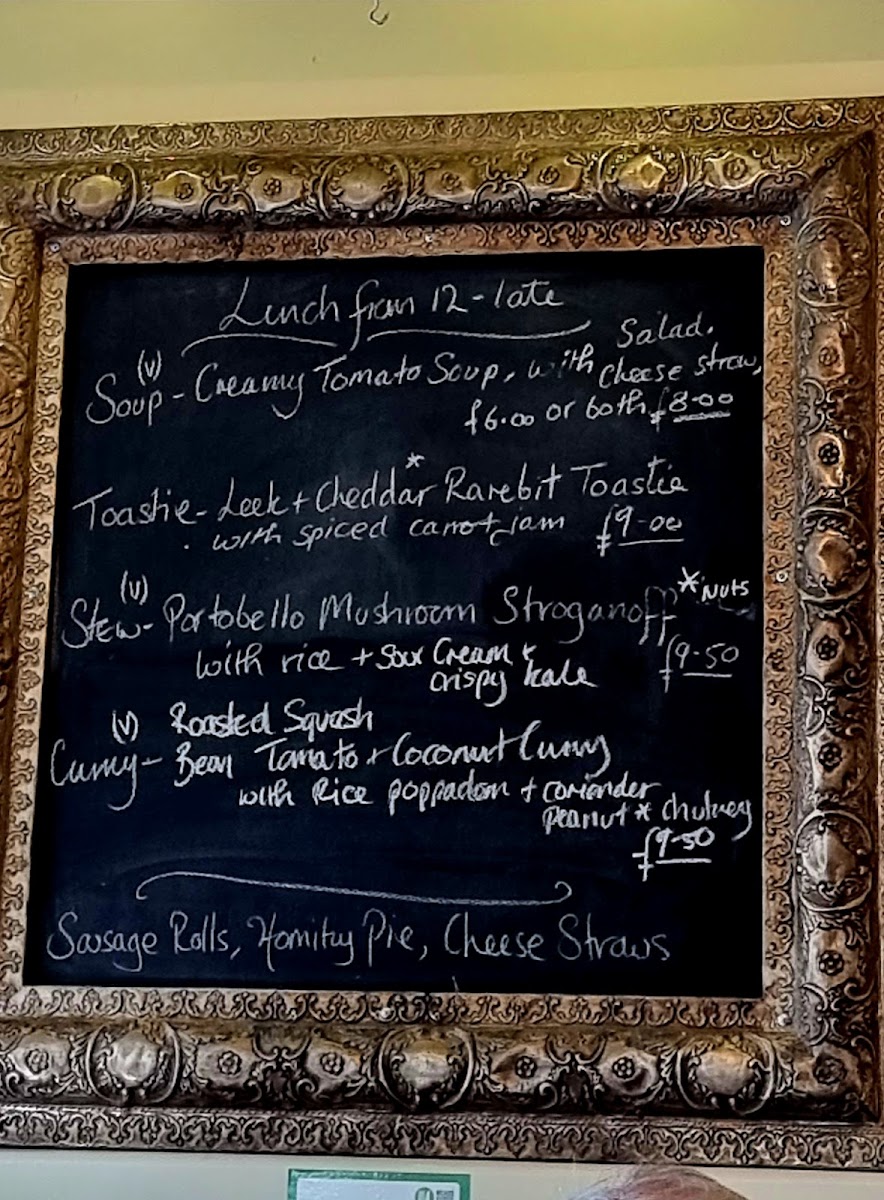 Lunch from 12-late
(v)
Soup - Creamy Tomato Soup, with Salad.
cheese straw,
£6.00 or both £8.00
Toastie - Leek + Cheddar* Rarebit Toastie
with spiced carrot jam £9-00
(v)
Stew - Portobello Mushroom Stroganoff *NUTS
with rice + sour cream + £9-50
crispy kale
(v) Roasted Squash
Curry - Bean Tomato + Coconut Curry
with Rice poppadom + coriander
peanut * chutney
£9-50
Sausage Rolls, Homity Pie, Cheese Straws